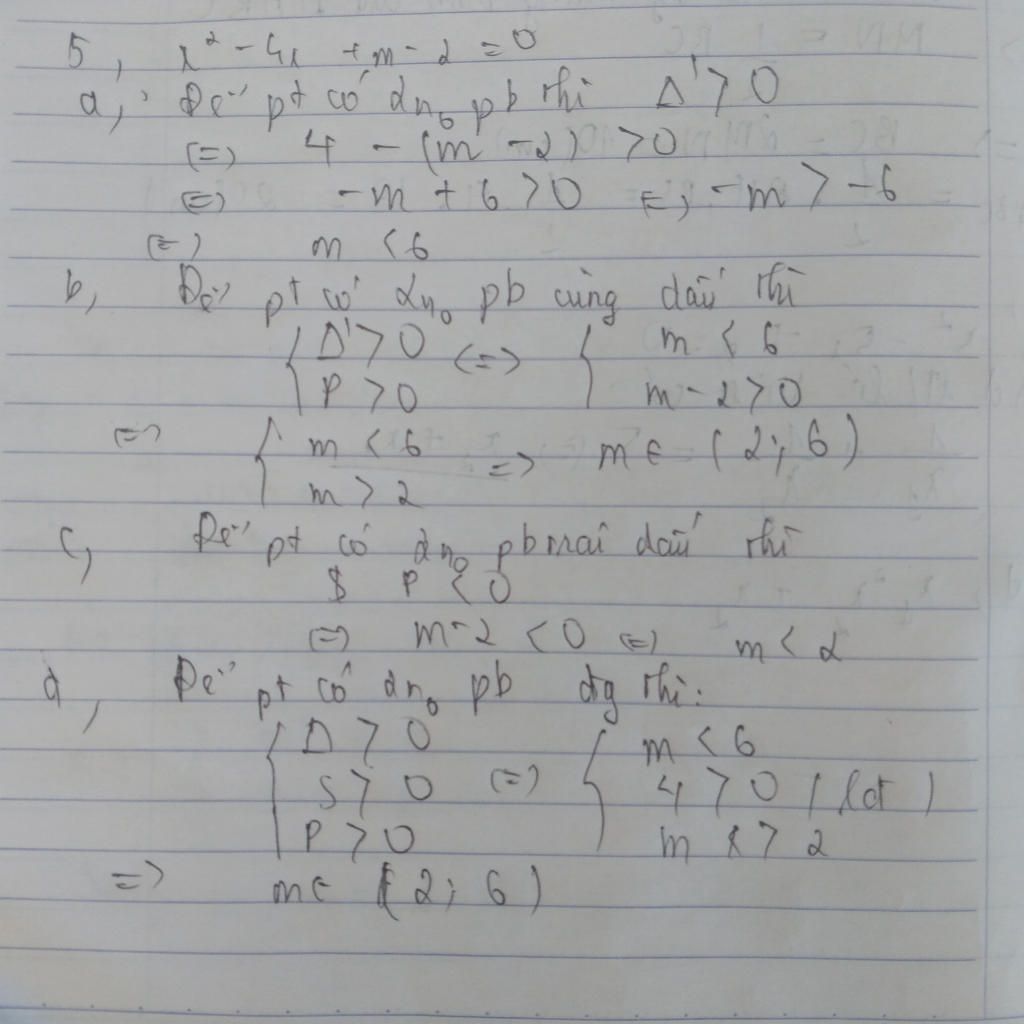 5, x² - 4x + m - 2 = 0
a, Để pt có 2n₀ pb thì Δ' > 0
(=) 4 - (m - 2) > 0
(=) -m + 6 > 0 (=) -m > -6
(=) m < 6
b, Để pt có 2n₀ pb cùng dấu thì
{ Δ' > 0 (=) { m < 6
P > 0 m - 2 > 0
=> { m < 6 => m ∈ (2; 6)
m > 2
c, Để pt có 2n₀ pb trái dấu thì
P < 0
(=) m - 2 < 0 (=) m < 2
d, Để pt có 2n₀ pb dg thì:
{ Δ > 0 { m < 6
S > 0 (=) 4 > 0 (đ)
P > 0 m > 2
=> m ∈ (2; 6)